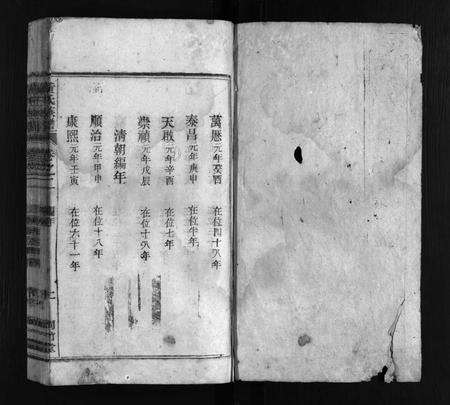 萬曆元年癸酉 在位四十八年
泰昌元年庚申 在位半年
天啟元年辛酉 在位七年
崇禎元年戊辰 在位十八年
清朝編年
順治元年甲申 在位十八年
康熙元年壬寅 在位六十一年